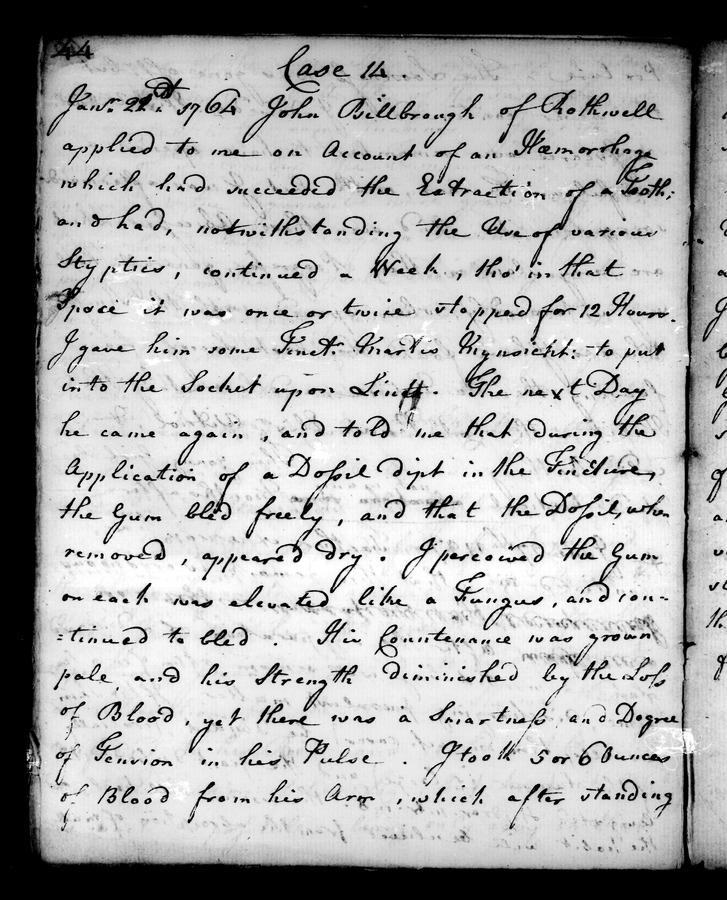 44
Case 14
Janr. 21st. 1764 John Billbrough of Rothwell
applied to me on Account of an Hæmorrhage
which had succeeded the Extraction of a Tooth;
and had, notwithstanding the Use of various
Styptics, continued a Week, tho' in that
Space it was once or twice stopped for 12 Hours.
I gave him some Tinct. Martis Mynsicht: to put
into the Socket upon Lint. The next Day
he came again, and told me that during the
Application of a Dossil dipt in the Tincture,
the Gum bled freely, and that the Dossil, when
removed, appeared dry. I perceived the Gum
on each was elevated like a Fungus, and con-
=tinued to bled. His Countenance was grown
pale and his Strength diminished by the Loss
of Blood, yet there was a Smartness and Degree
of Tension in his Pulse. I took 5 or 6 Ounces
of Blood from his Arm, which after standing